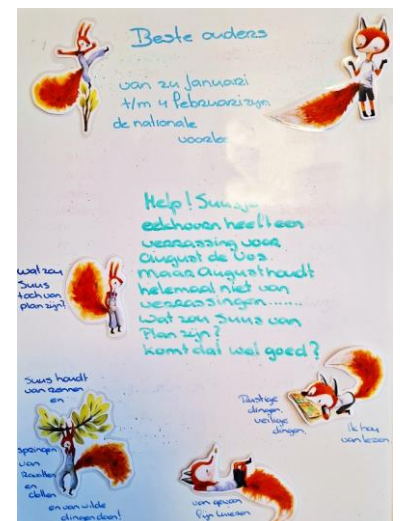 Beste ouders
van 24 januari
t/m 4 februari zijn
de nationale
Help! Suusje
eekhoorn heeft een
verrassing voor
august de vos.
maar August houdt
helemaal niet van
verrassingen.......
wat zou Suus van
Plan zijn?
komt dat wel goed?
wat zou
Suus
toch van
plan zijn?
Suus houdt
van rennen
en
springen
van
en
dollen
en van wilde
dingen doen!
Rustige
dingen.
veilige
dingen.
Ik hou
van lezen
van gewoon
fijn luieren